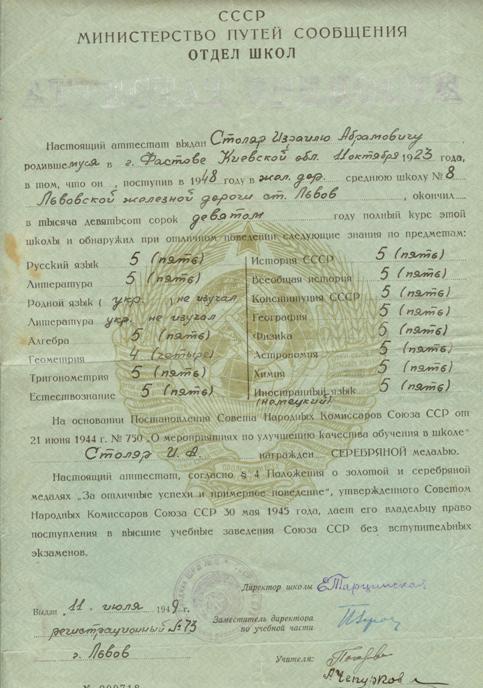 СССР
МИНИСТЕРСТВО ПУТЕЙ СООБЩЕНИЯ
ОТДЕЛ ШКОЛ
Настоящий аттестат выдан Столяр Израилю Абрамовичу
родившемуся в г. Фастове Киевской обл. 11 октября 1923 года,
в том, что он, поступив в 1948 году в жел. дор. среднюю школу № 8
Львовской железной дороги ст. Львов, окончил
в тысяча девятьсот сорок девятом году полный курс этой
школы и обнаружил при отличном поведении следующие знания по предметам:
Русский язык 5 (пять) История СССР 5 (пять)
Литература 5 (пять) Всеобщая история 5 (пять)
Родной язык (укр.) не изучал Конституция СССР 5 (пять)
Литература укр. не изучал География 5 (пять)
Алгебра 5 (пять) Физика 5 (пять)
Геометрия 4 (четыре) Астрономия 5 (пять)
Тригонометрия 5 (пять) Химия 5 (пять)
Естествознание 5 (пять) Иностранный язык 5 (пять)
(немецкий)
На основании Постановления Совета Народных Комиссаров Союза ССР от
21 июня 1944 г. № 750 „О мероприятиях по улучшению качества обучения в школе"
Столяр И. А. награжден СЕРЕБРЯНОЙ медалью.
Настоящий аттестат, согласно § 4 Положения о золотой и серебряной
медалях „За отличные успехи и примерное поведение", утвержденного Советом
Народных Комиссаров Союза ССР 30 мая 1945 года, дает его владельцу право
поступления в высшие учебные заведения Союза ССР без вступительных
экзаменов.
Директор школы
Выдан 11 июля 1949 г.
Заместитель директора
по учебной части
регистрационный № 73
г. Львов
Учителя: